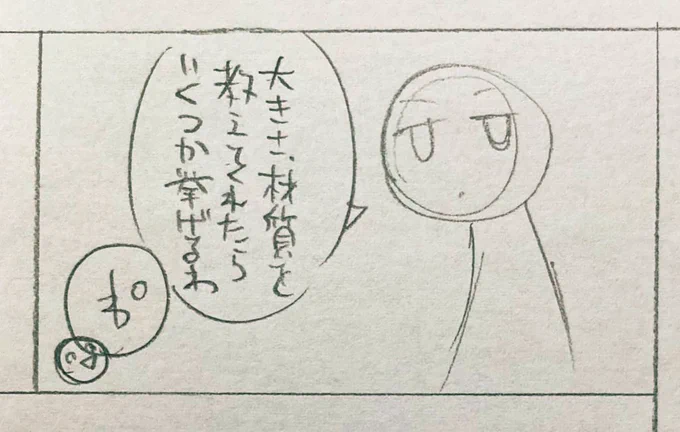 大きさ、材質を
教えてくれたら
いくつか挙げるわ